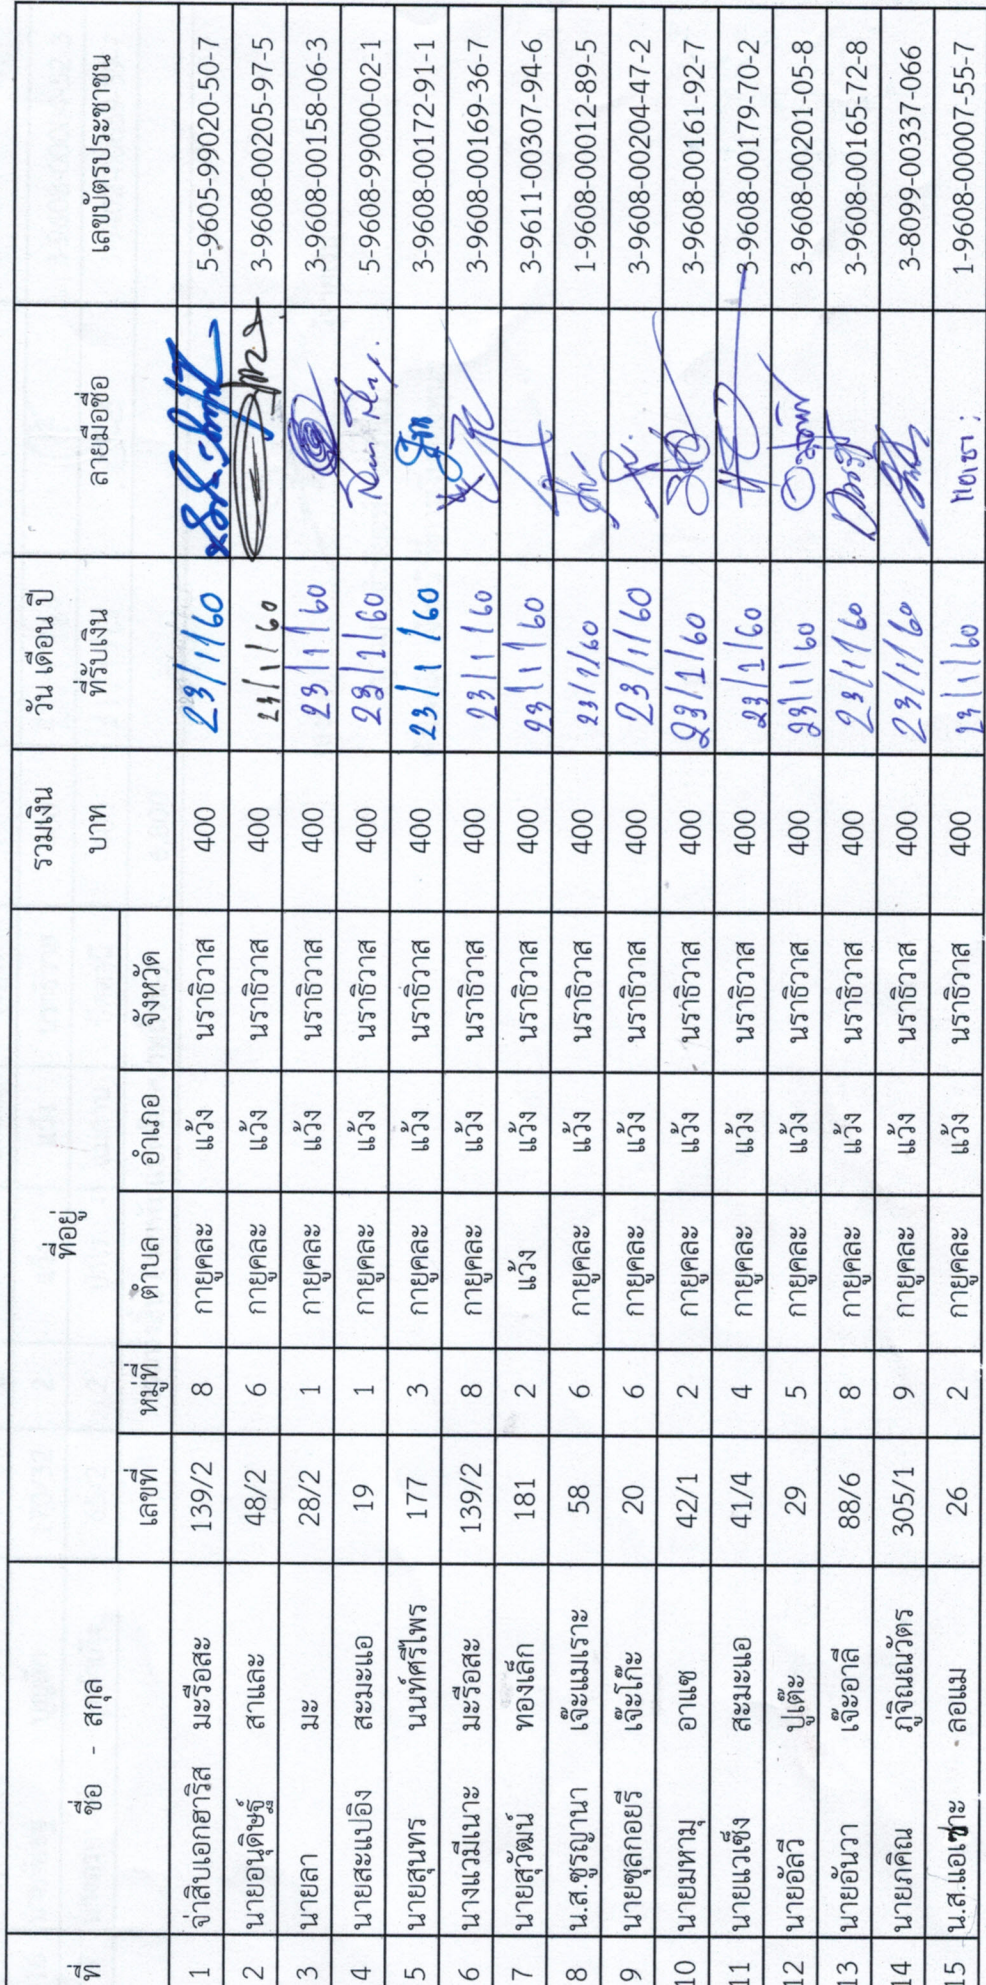 ที่ ชื่อ - สกุล ที่อยู่ รวมเงิน วัน เดือน ปี ลายมือชื่อ เลขบัตรประชาชน
เลขที่ หมู่ที่ ตำบล อำเภอ จังหวัด บาท ที่รับเงิน
1 จ่าสิบเอกฮาริส มะรือสะ 139/2 8 กายูคละ แว้ง นราธิวาส 400 23/1/60 5-9605-99020-50-7
2 นายอนุดิษฐ์ สาและ 48/2 6 กายูคละ แว้ง นราธิวาส 400 23/1/60 3-9608-00205-97-5
3 นายลา มะ 28/2 1 กายูคละ แว้ง นราธิวาส 400 23/1/60 3-9608-00158-06-3
4 นายสะแปอิง สะมะแอ 19 1 กายูคละ แว้ง นราธิวาส 400 23/1/60 5-9608-99000-02-1
5 นายสุนทร นนท์ศรีไพร 177 3 กายูคละ แว้ง นราธิวาส 400 23/1/60 3-9608-00172-91-1
6 นางแวมีเนาะ มะรือสะ 139/2 8 กายูคละ แว้ง นราธิวาส 400 23/1/60 3-9608-00169-36-7
7 นายสุวัฒน์ ทองเล็ก 181 2 แว้ง แว้ง นราธิวาส 400 23/1/60 3-9611-00307-94-6
8 น.ส.ซูรญานา เจ๊ะแมเราะ 58 6 กายูคละ แว้ง นราธิวาส 400 23/1/60 1-9608-00012-89-5
9 นายซุลกอยรี เจ๊ะโก๊ะ 20 6 กายูคละ แว้ง นราธิวาส 400 23/1/60 3-9608-00204-47-2
10 นายมหามุ อาแซ 42/1 2 กายูคละ แว้ง นราธิวาส 400 23/1/60 3-9608-00161-92-7
11 นายแวเซ็ง สะมะแอ 41/4 4 กายูคละ แว้ง นราธิวาส 400 23/1/60 3-9608-00179-70-2
12 นายอัลวี ปูเต๊ะ 29 5 กายูคละ แว้ง นราธิวาส 400 23/1/60 3-9608-00201-05-8
13 นายอันวา เจ๊ะอาลี 88/6 8 กายูคละ แว้ง นราธิวาส 400 23/1/60 3-9608-00165-72-8
14 นายภคิณ ภู่จิณณวัตร 305/1 9 กายูคละ แว้ง นราธิวาส 400 23/1/60 3-8099-00337-066
15 น.ส.แอเซาะ ลอแม 26 2 กายูคละ แว้ง นราธิวาส 400 23/1/60 1-9608-00007-55-7